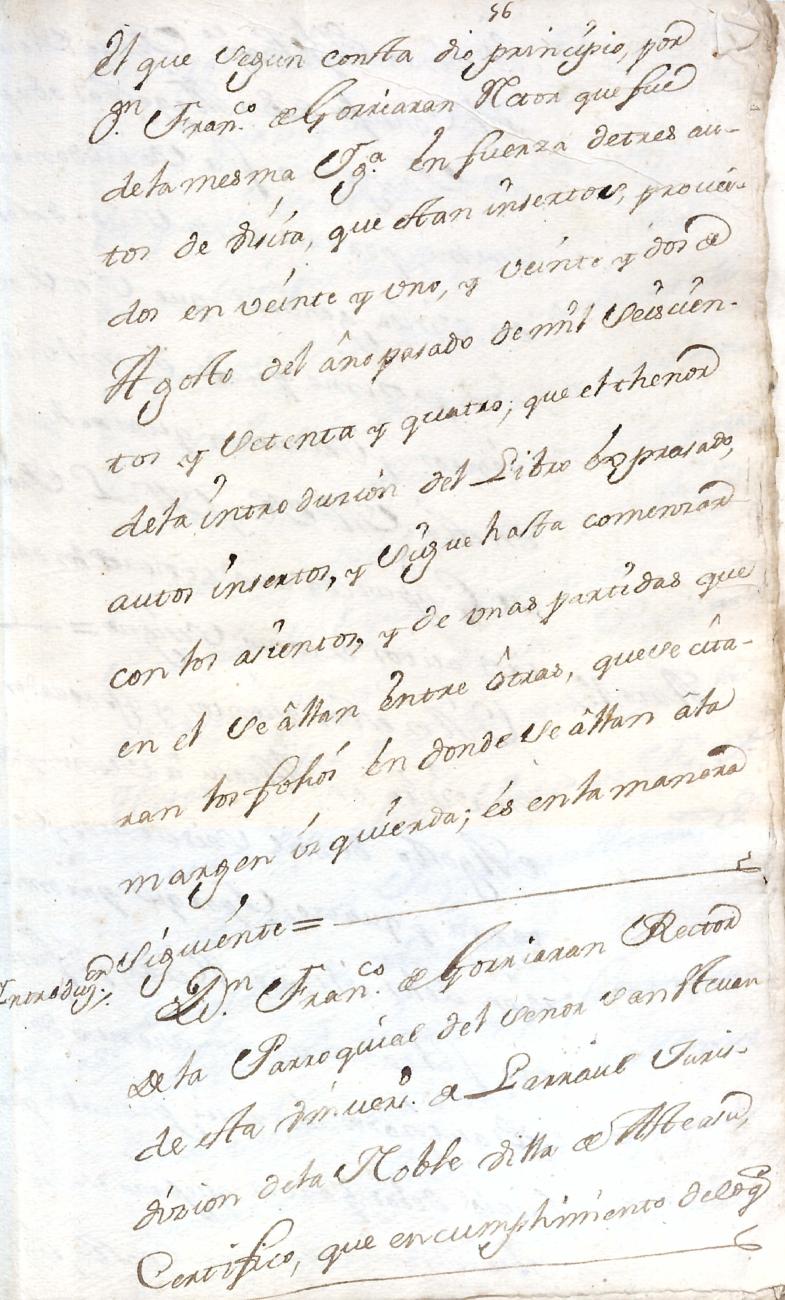 56
El que segun consta dio principio, por
Dn. Franco. de Gorriaran Retor que fue
dela mesma Yga. en fuerza detres au-
tos de visita, que estan insertos, provei-
dos en veinte y uno, y veinte y dos de
Agosto del año pasado de mil Seiscien-
tos y Setenta y quatro; que el thenor
dela introduzion del Libro expresado,
autos insertos, y sigue hasta comenzar
con los asientos, y de unas partidas que
en el se âllan entre ôtras, quese cita-
ran los folios en donde se âllan âla
margen izquierda; és enla manera
Siguiente =
Introduzn.
Dn. Franco. de Gorriaran Rector
De la Parroquial del señor san Estevan
de esta Univers. de Larraul Juris-
dizion dela Noble Villa de Asteasu,
Certifico, que encumplimiento delo q